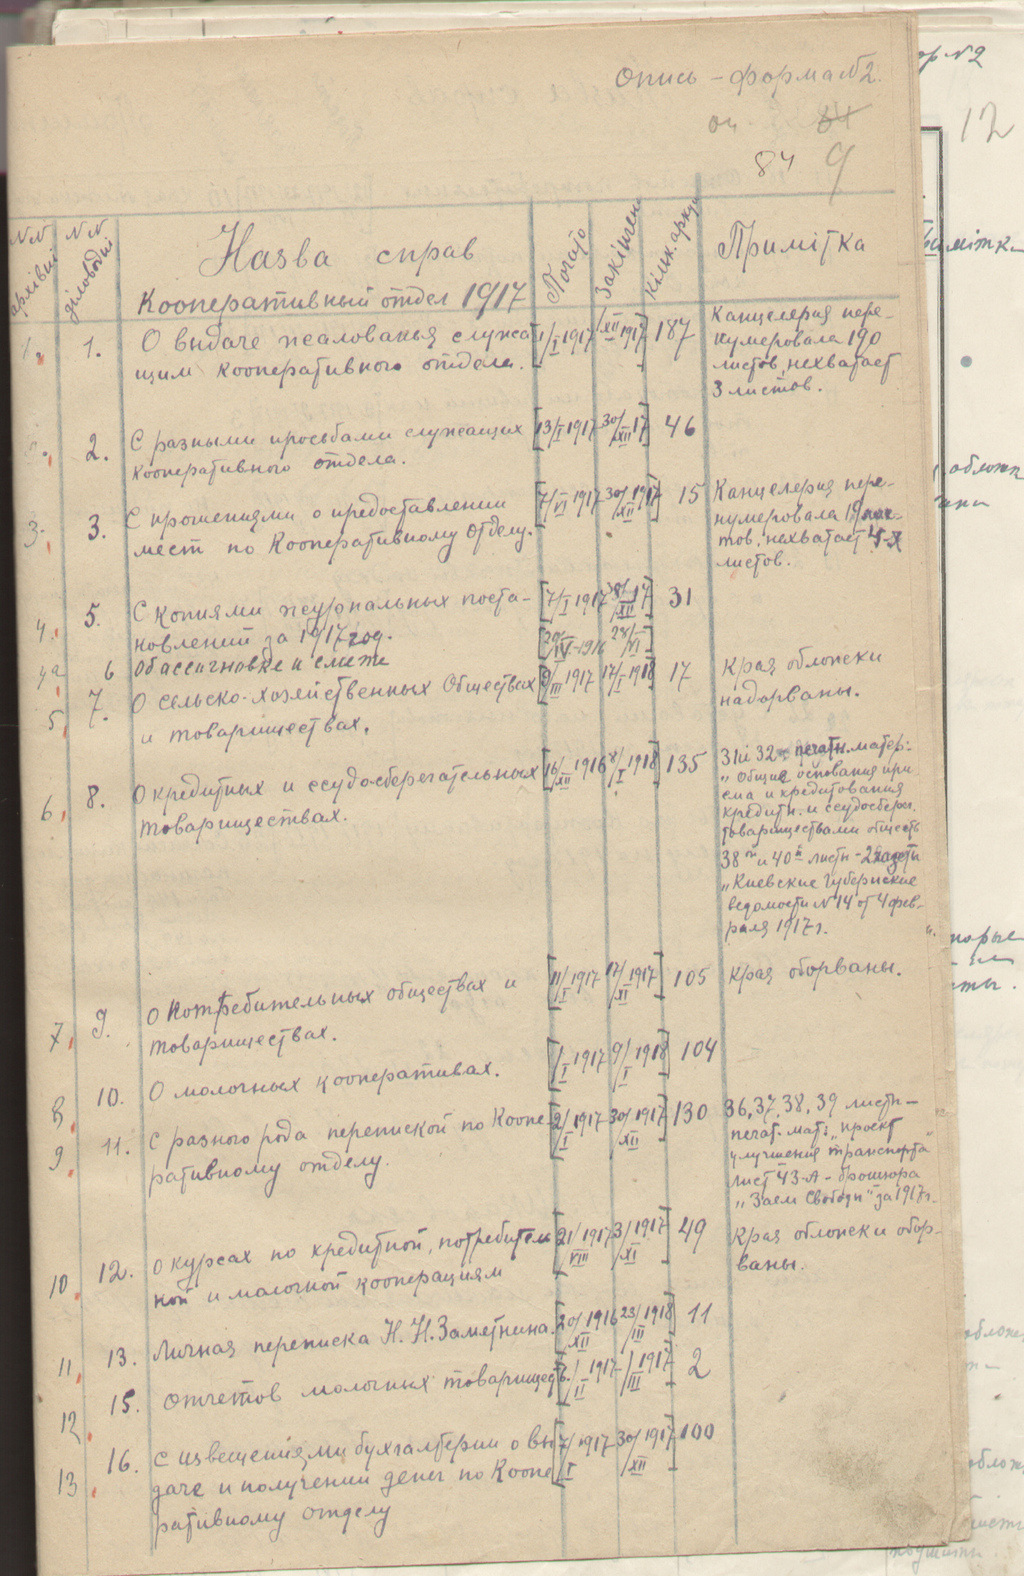 Опись - форма №2.
оп. 84
84 9
№№ архівні
№№ діловодні
Назва справ
Кооперативный отдел 1917
Почато
Закінчено
Кільк. аркуш
Примітка
1. 1. О выдаче жалованья служа [1/I 1917 /XII 1917] 187 Канцелерия пере-
щим Кооперативного отдела. нумеровала 190
листов, нехватает
3 листов.
2. С разными просьбами служащих [13/I 1917 30/XII 17] 46
Кооперативного отдела.
3. 3. С прошениями о предоставлении [7/VI 1917 30/XII 1917] 15 Канцелерия пере-
мест по Кооперативному отделу. нумеровала 19 лис-
тов, нехватает 4-х
листов.
4. 5. С копиями журнальных поста- [7/I 1917 /XII 17] 31
новлений за 1917 год.
4а 6 Об ассигновке и смете [29/IV-1916 28/VI]
5. 7. О сельско-хозяйственных Обществах [9/III 1917 17/I 1918] 17 Края обложки
и товариществах. надорваны.
6. 8. О кредитных и ссудосберегательных [16/XII 1916 8/I 1918] 135 31 и 32 - печатн. матер:
товариществах. „Общие основания при
ема и кредитования
кредитн. и ссудосбер.
товариществами обществ
38й и 40й листы - 2 газеты
„Киевские Губернские
ведомости №14 от 4 фев-
раля 1917 г.
7. 9. О потребительных обществах и [11/I 1917 17/XI 1917] 105 Края оборваны.
товариществах.
8. 10. О молочных кооперативах. [/I 1917 9/I 1918] 104
9. 11. С разного рода перепиской по Коопе- [2/I 1917 30/XII 1917] 130 36, 37, 38, 39 листы -
ративному отделу. печат. мат: „проект
улучшения транспорта"
лист 43-А - брошюра
„Заем Свободы" за 1917 г.
10. 12. О курсах по кредитной, потребитель [21/VIII 1917 3/XI 1917] 49 Края обложки обор-
ной и молочной кооперациям ваны.
11. 13. Личная переписка Н. Н. Заметнина. [20/XII 1916 23/III 1918] 11
12. 15. Отчетов молочных товариществ. [/II 1917 - /III 1917] 2
13. 16. С извещениями бухгалтерии о вы [7/I 1917 30/XII 1917] 100
даче и получении денег по Коопе
ративному отделу
№2
12